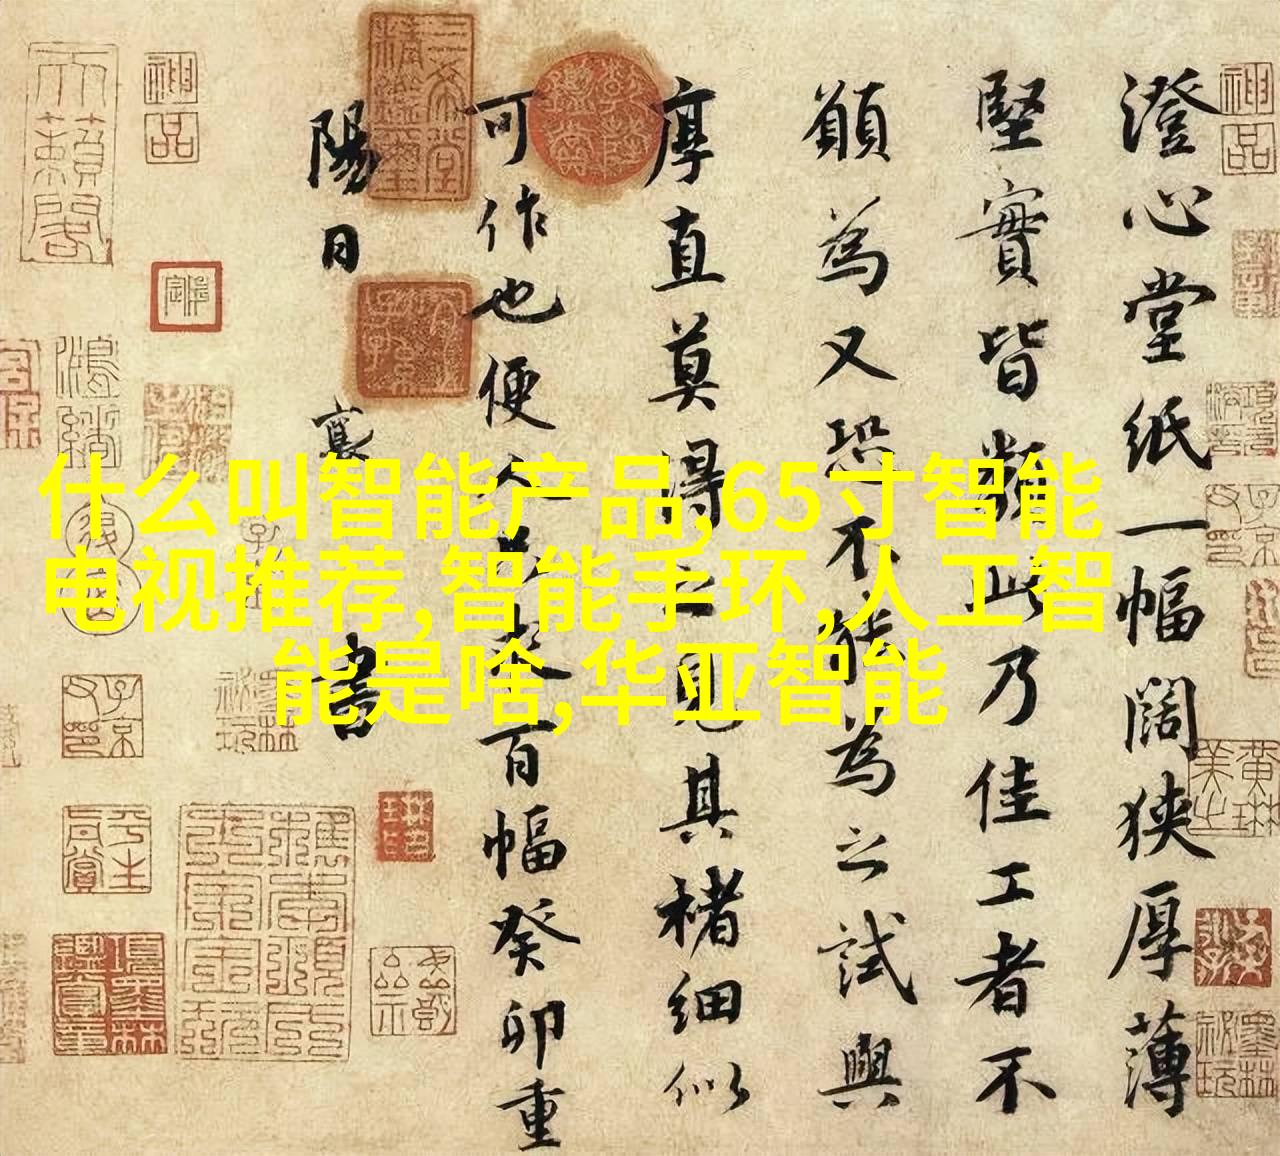 什么叫智能产品,65寸智能
电视推荐,智能手环,人工智
能是啥,华亚智能
澄心堂紙一幅闊狹厚薄
堅實皆類此乃佳工者不
願為又恐不能為之試與
厚直莫得之見其楮細似
可作也便人只求百幅癸卯重
陽日 襄書
神品
神品
天籟閣